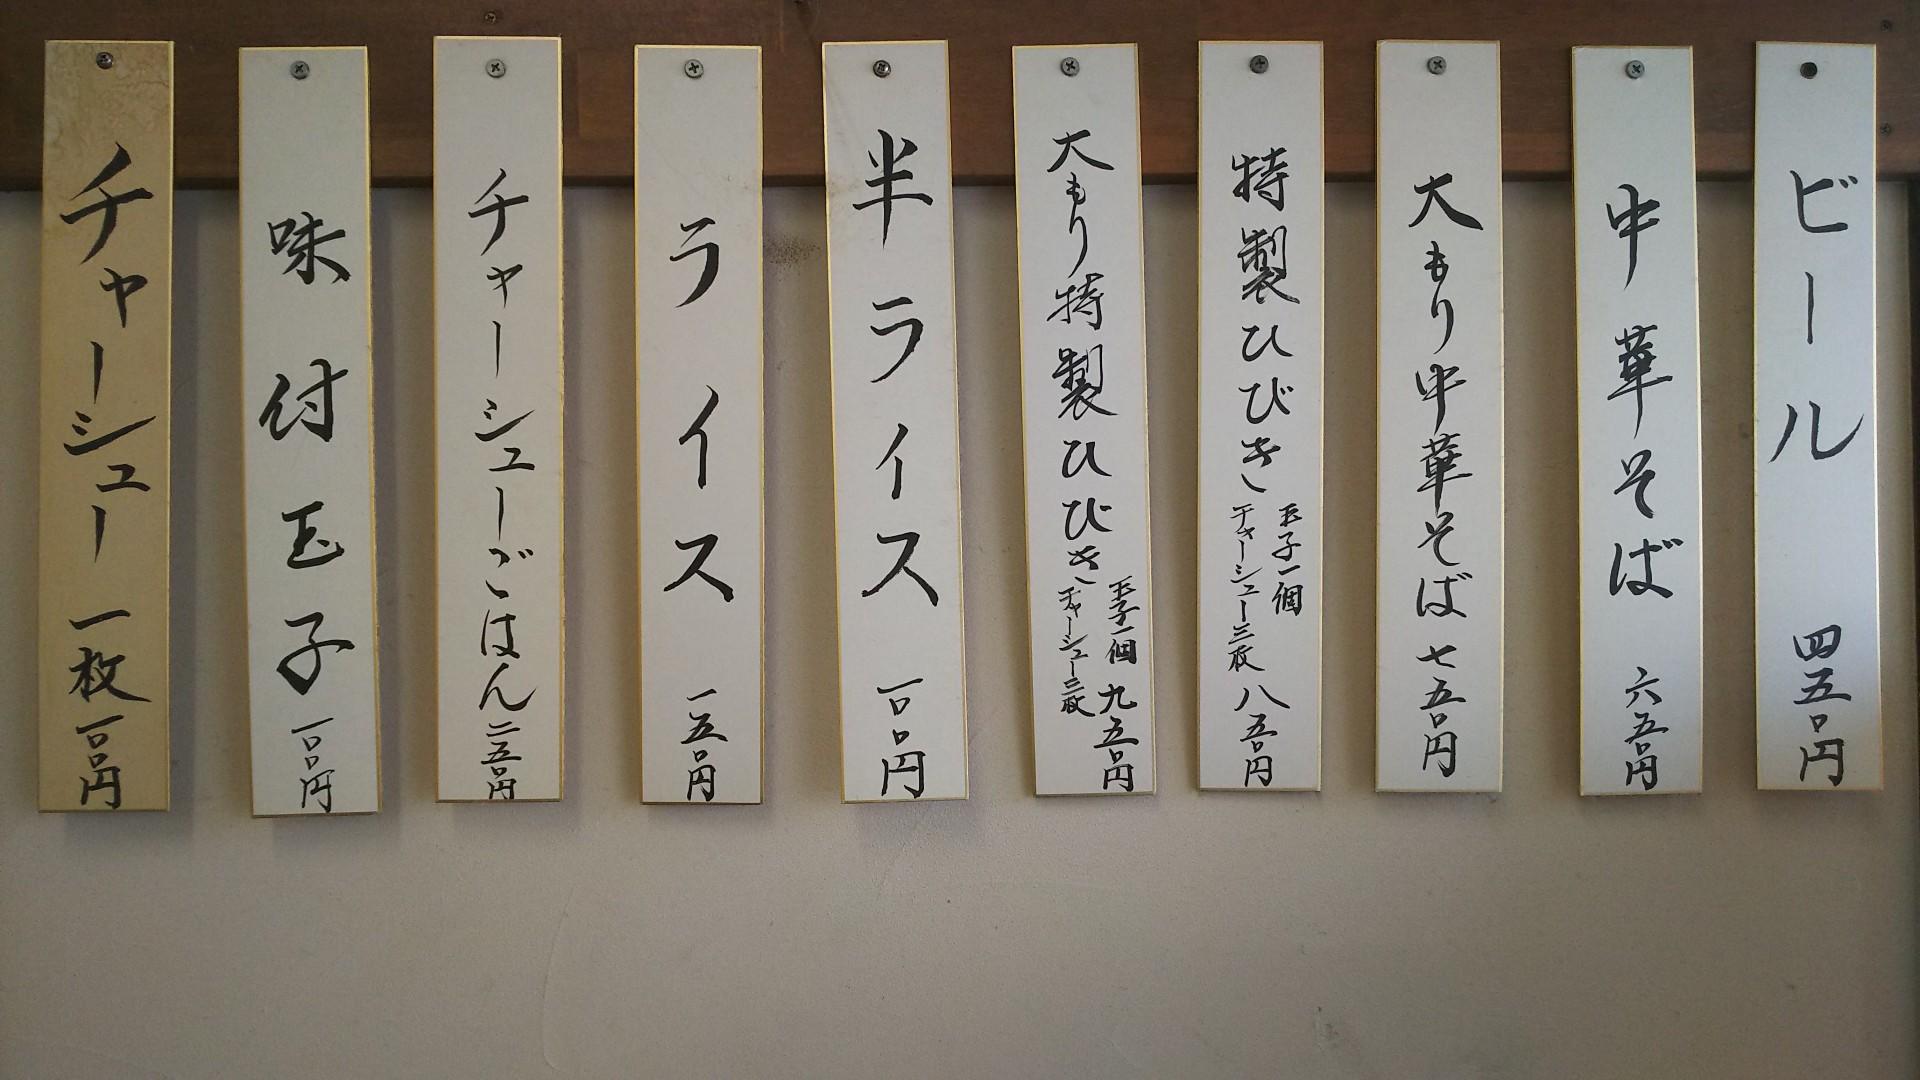 ビール 四五〇円
中華そば 六五〇円
大もり中華そば 七五〇円
特製ひびき 玉子一個 チャーシュー三枚 八五〇円
大もり特製ひびき 玉子一個 チャーシュー三枚 九五〇円
半ライス 一〇〇円
ライス 一五〇円
チャーシューごはん 二五〇円
味付玉子 一〇〇円
チャーシュー 一枚 一〇〇円